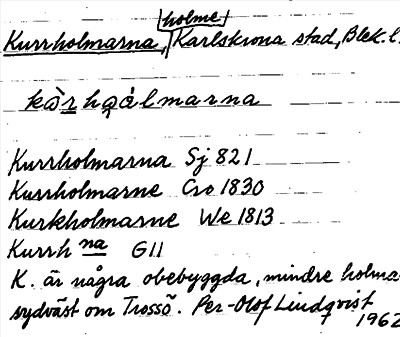 holme
Kurrholmarna, Karlskrona stad, Blek. l.
kàrhǫálmarna
Kurrholmarna Sj 821
Kurrholmarne Cro 1830
Kurkholmarne We 1813
Kurrh na G11
K. är några obebyggda, mindre holma
sydväst om Trossö. Per-Olof Lindqvist
1962